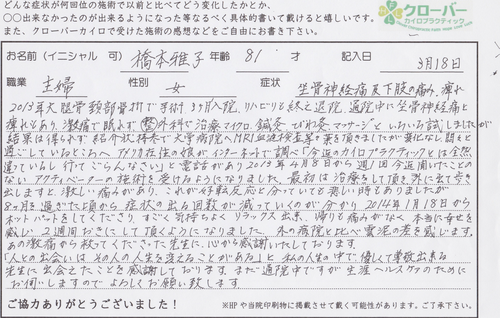 どんな症状が何回位の施術で以前と比べてどう変化したかとか、
○○出来なかったのが出来るようになった等なるべく具体的書いて戴けると嬉しいです。
また、クローバーカイロで受けた施術の感想などをご自由にお書き下さい。
クローバー
カイロプラクティック
お名前(イニシャル 可) 橋本雅子 年齢 81才 記入日 3月18日
職業 主婦 性別 女 症状 坐骨神経痛及下肢の痛み、痺れ
2013年大腿骨頸部骨折で手術3ヶ月入院、リハビリを終え退院。通院中に坐骨神経痛と
痺れもあり、激痛で眠れず整外科で治療マイクロ、鍼灸、びわ灸、マッサージといろいろ試しましたが
結果は得られず紹介状持参で大学病院へMRI血液検査等の薬を頂きましたが変化なし。悶々と
過ごしているところへ、アメリカ在住の娘がインターネットで調べ「今近のカイロプラクティックとは全然
違っているし行ってごらんなさい」と電話があり2013年4月8日から週1回今近聞いたことの
ない アクティベーターの施術を受けるようになりました。最初は治療をして頂き外に出て歩き
出しますと、激しい痛みがあり、これが好転反応と分っていても悲しい時もありましたが
8ヶ月を過ぎた頃から症状の出る回数が減っていくのが分かり2014年1月18日から
ホットパットをしてくださり、すごく気持ちよくリラックス出来、帰りも痛みがなく本当に幸せを
感じ 2週間おきにして頂くようになりました。木の病院と比べ雲泥の差を感じます。
あの激痛から救ってくださった先生に、心から感謝いたしております。
「人との出会いは その人の人生を変えることがある」と 私の人生の中で、優しくて尊敬出来る
先生に出会えたことを感謝しております。まだ通院中ですが生涯ヘルスケアのために
お伺いしますので よろしくお願い致します。
ご協力ありがとうございました!
※HPや当院印刷物に掲載させて戴く可能性があります。ご了承下さい。